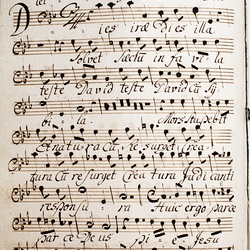 Dies iræ dies illa
Solvet Sæclu in favila
teste David teste David Cu Sy
bila Mors stupebit
et natura Cu re surget crea
tura Cu resurget Creatura Judicanti
responsura Huic ergo parce
parce Deus pie Jesu